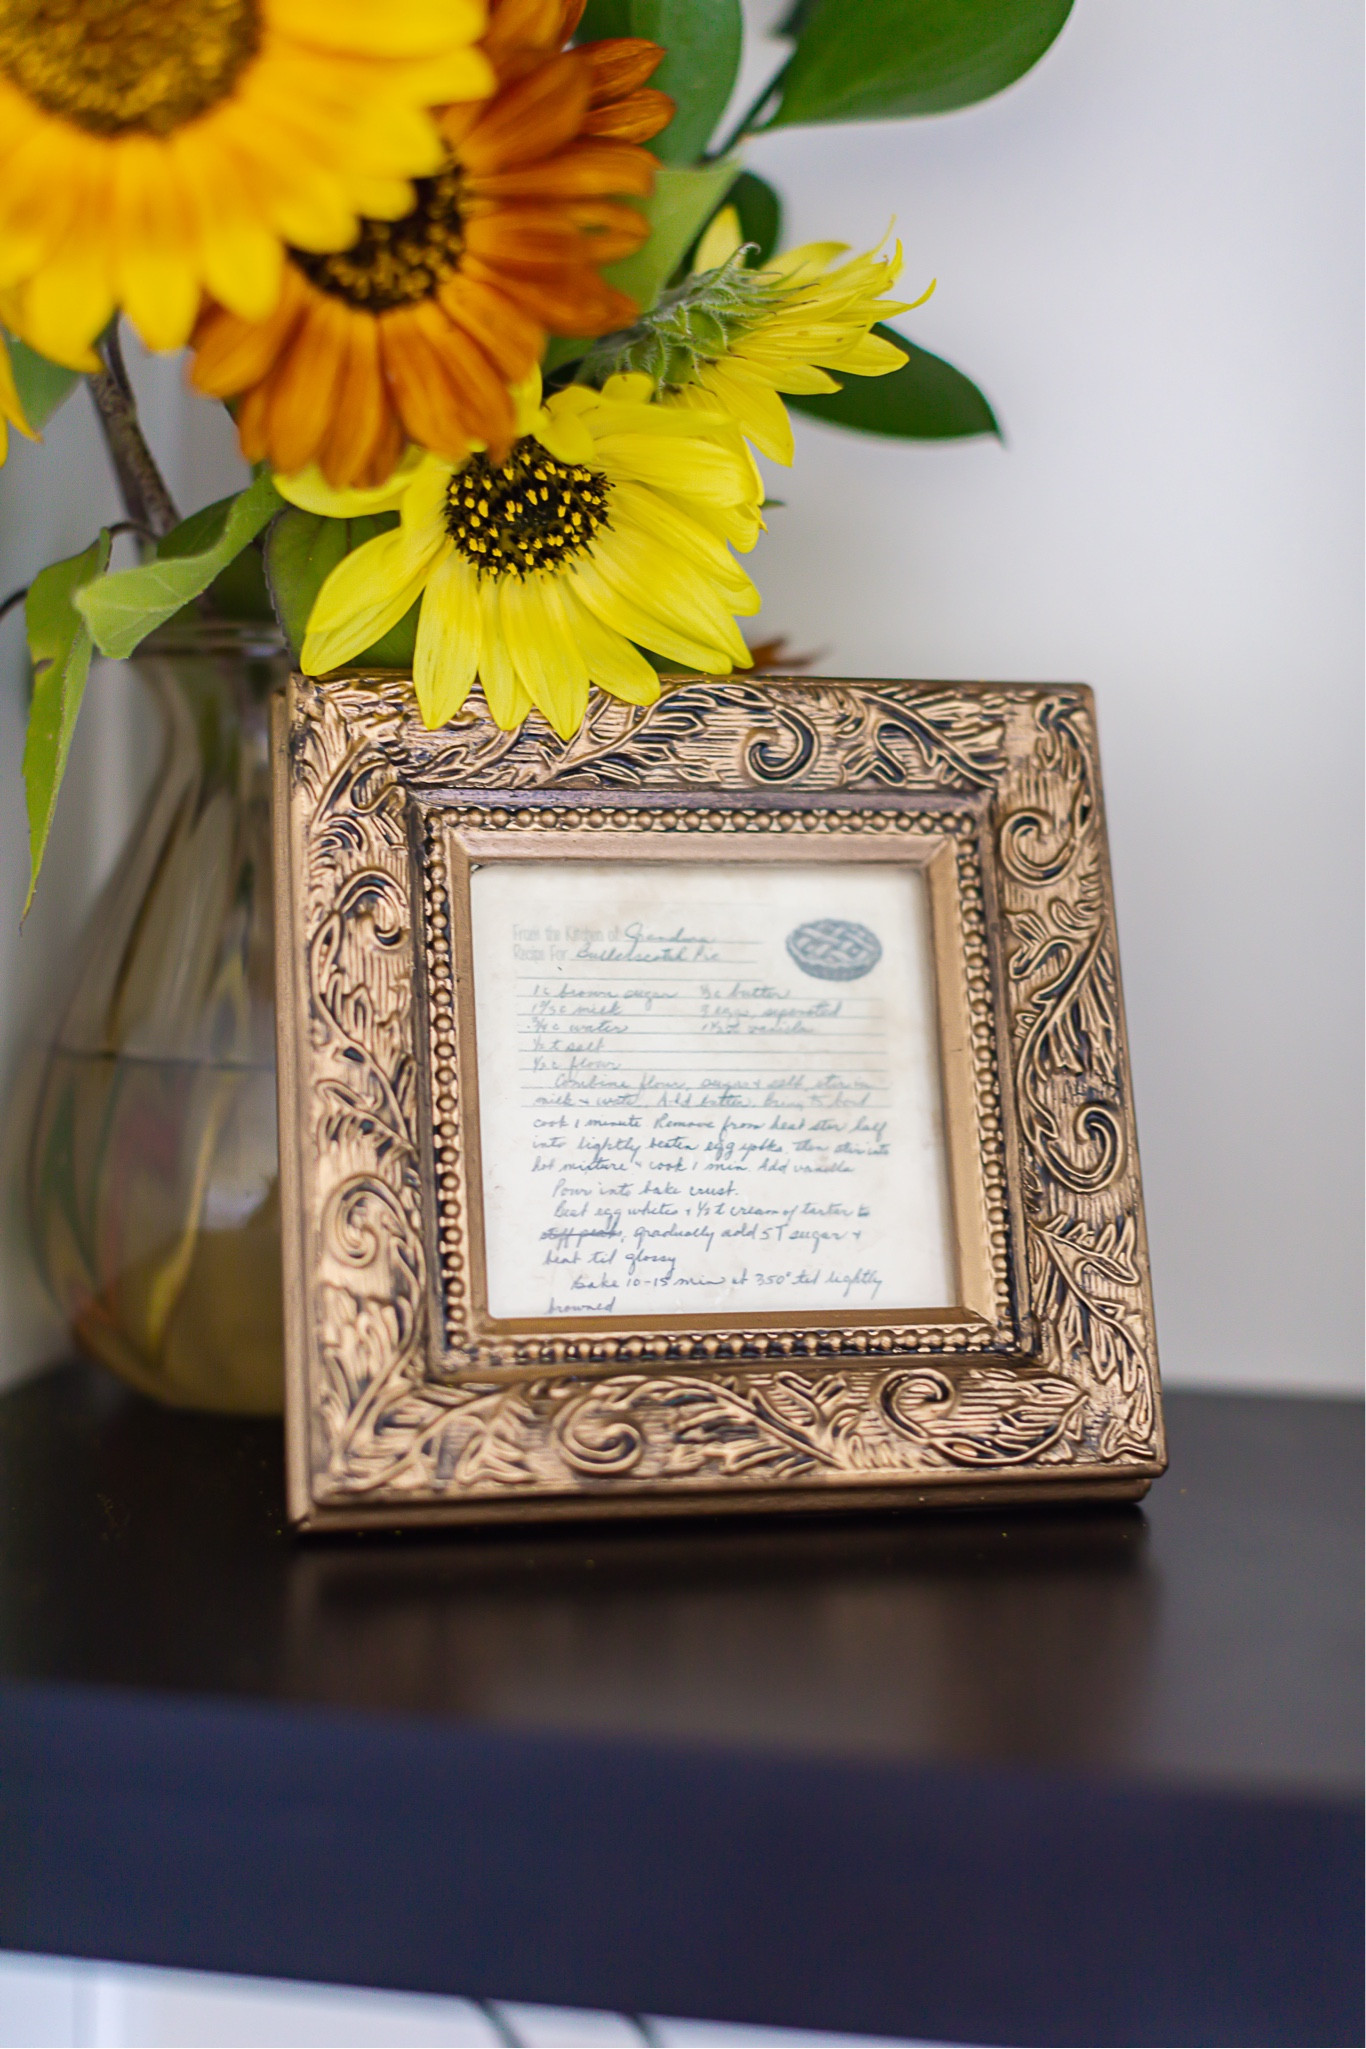 From the Kitchen of: Grandma
Recipe For: Butterscotch Pie
1 c brown sugar
c butter
1 2/3 c milk
3 eggs, separated
3/4 c water
t vanilla
1/2 t salt
c flour
Combine flour, sugar & salt, stir in
milk & water. Add butter. Bring to boil
cook 1 minute. Remove from heat stir half
into lightly beaten egg yolks. then stir into
hot mixture & cook 1 min. Add vanilla
Pour into bake crust.
Beat egg whites + 1/2 t cream of tarter to
stiff peak, gradually add 5 T sugar &
beat til glossy
bake 10-15 min at 350° til lightly
browned